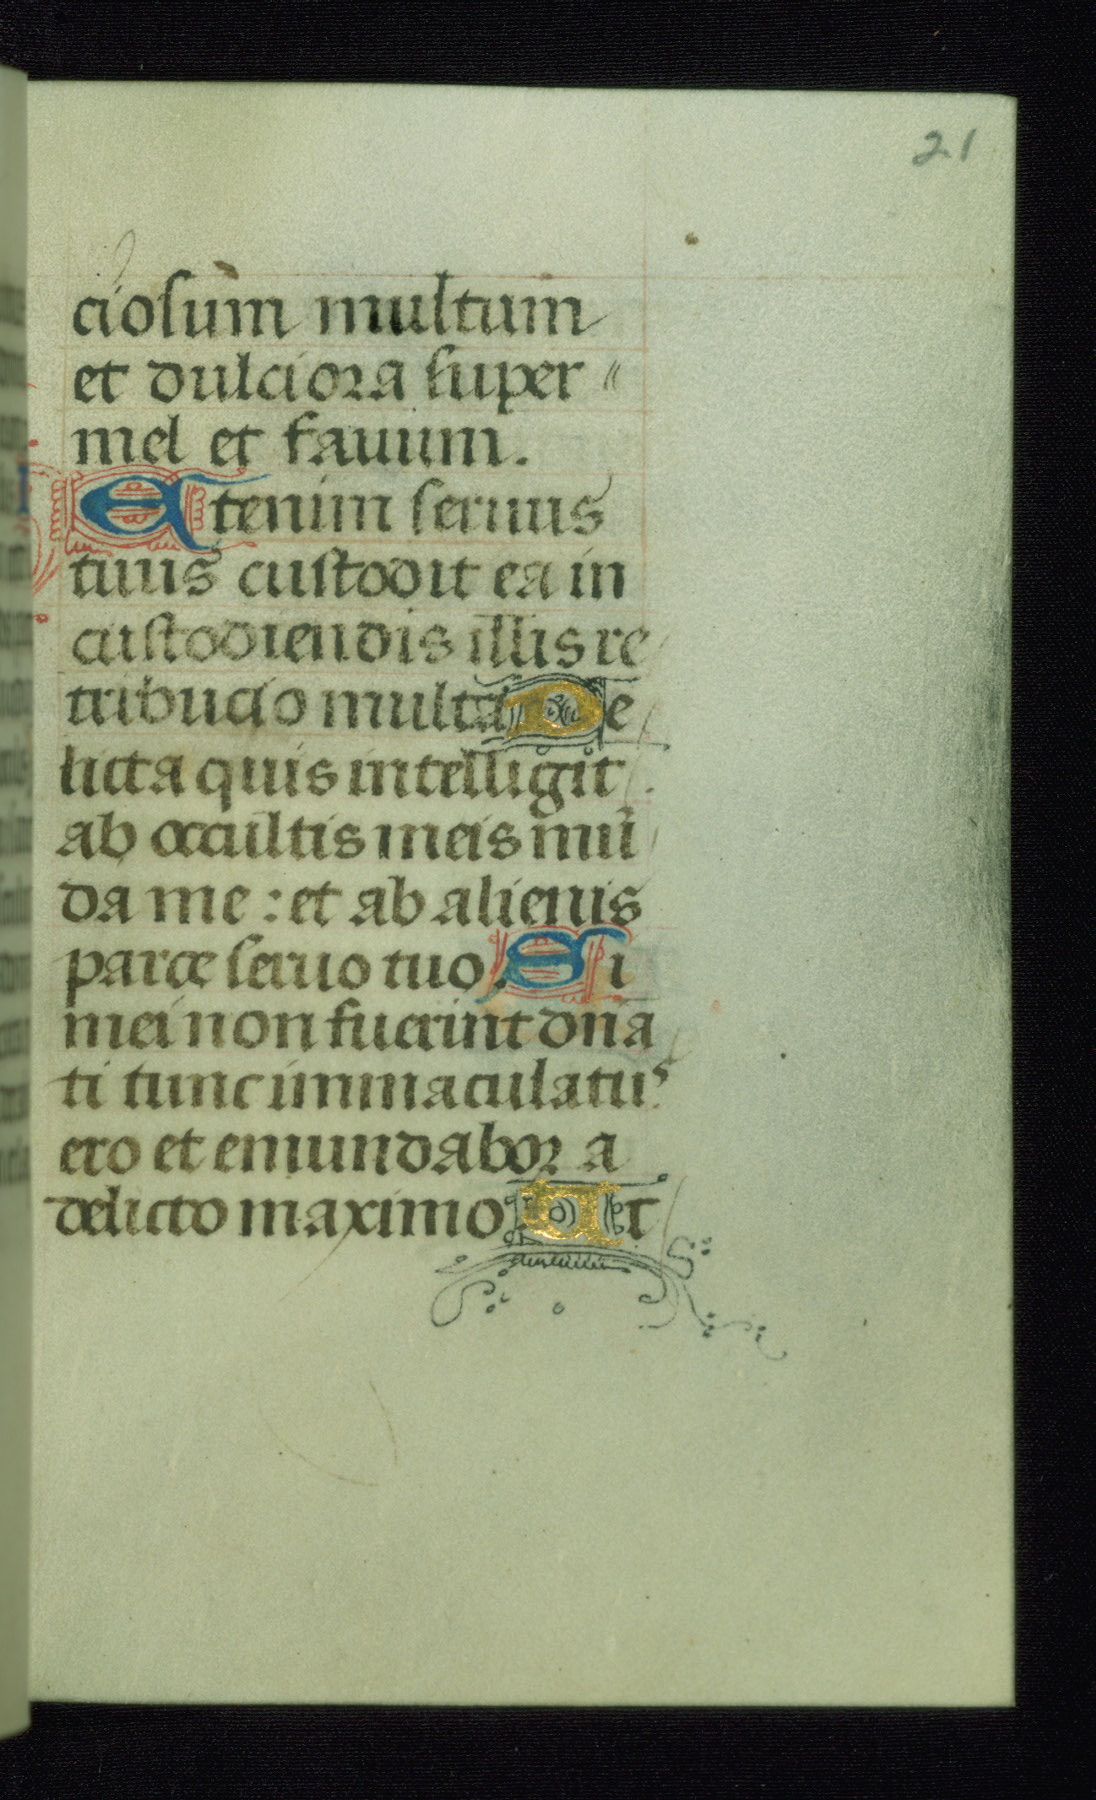 21
ciosum multum
et dulciora super
mel et favum.
Etenim seruus
tuus custodit ea in
custodiendis illis re
tribucio multa De
licta quis intelligit
ab occultis meis mū
da me : et ab alienis
parce seruo tuo. Si
mei non fuerint dn̄a
ti tunc immaculatus
ero et emundabor a
delicto maximo. Et